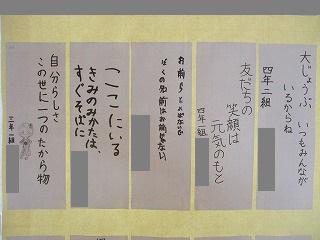 大じょうぶ いつもみんなが
いるからね
四年二組
友だちの
笑顔は
元気のもと
四年一組
お前らとよばないで
ぼくの名前はお前じゃない
ここにいる
きみのみかたは、
すぐそばに
自分らしさ
この世に一つのたから物
三年一組